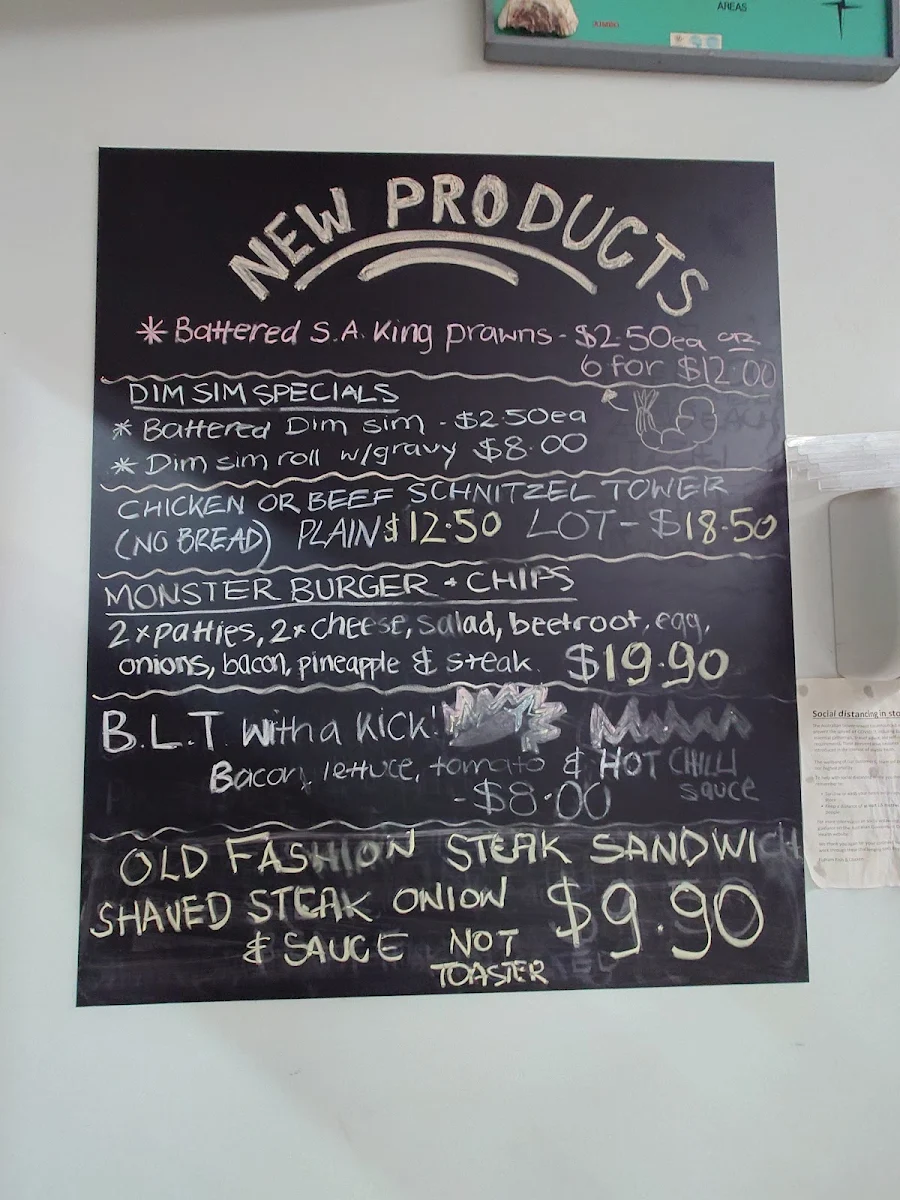 AREAS
JUMBO
NEW PRODUCTS
* Battered S.A. King prawns - $2.50ea or
6 for $12.00
DIM SIM SPECIALS
* Battered Dim sim - $2.50ea
* Dim sim roll w/gravy $8.00
CHICKEN OR BEEF SCHNITZEL TOWER
(NO BREAD) PLAIN $12.50 LOT - $18.50
MONSTER BURGER + CHIPS
2 x patties, 2 x cheese, salad, beetroot, egg,
onions, bacon, pineapple & steak. $19.90
B.L.T. with a kick!
Bacon, lettuce, tomato & HOT CHILLI
sauce
- $8.00
OLD FASHION STEAK SANDWICH
SHAVED STEAK ONION $9.90
& SAUCE NOT
TOASTER
Social distancing in sto